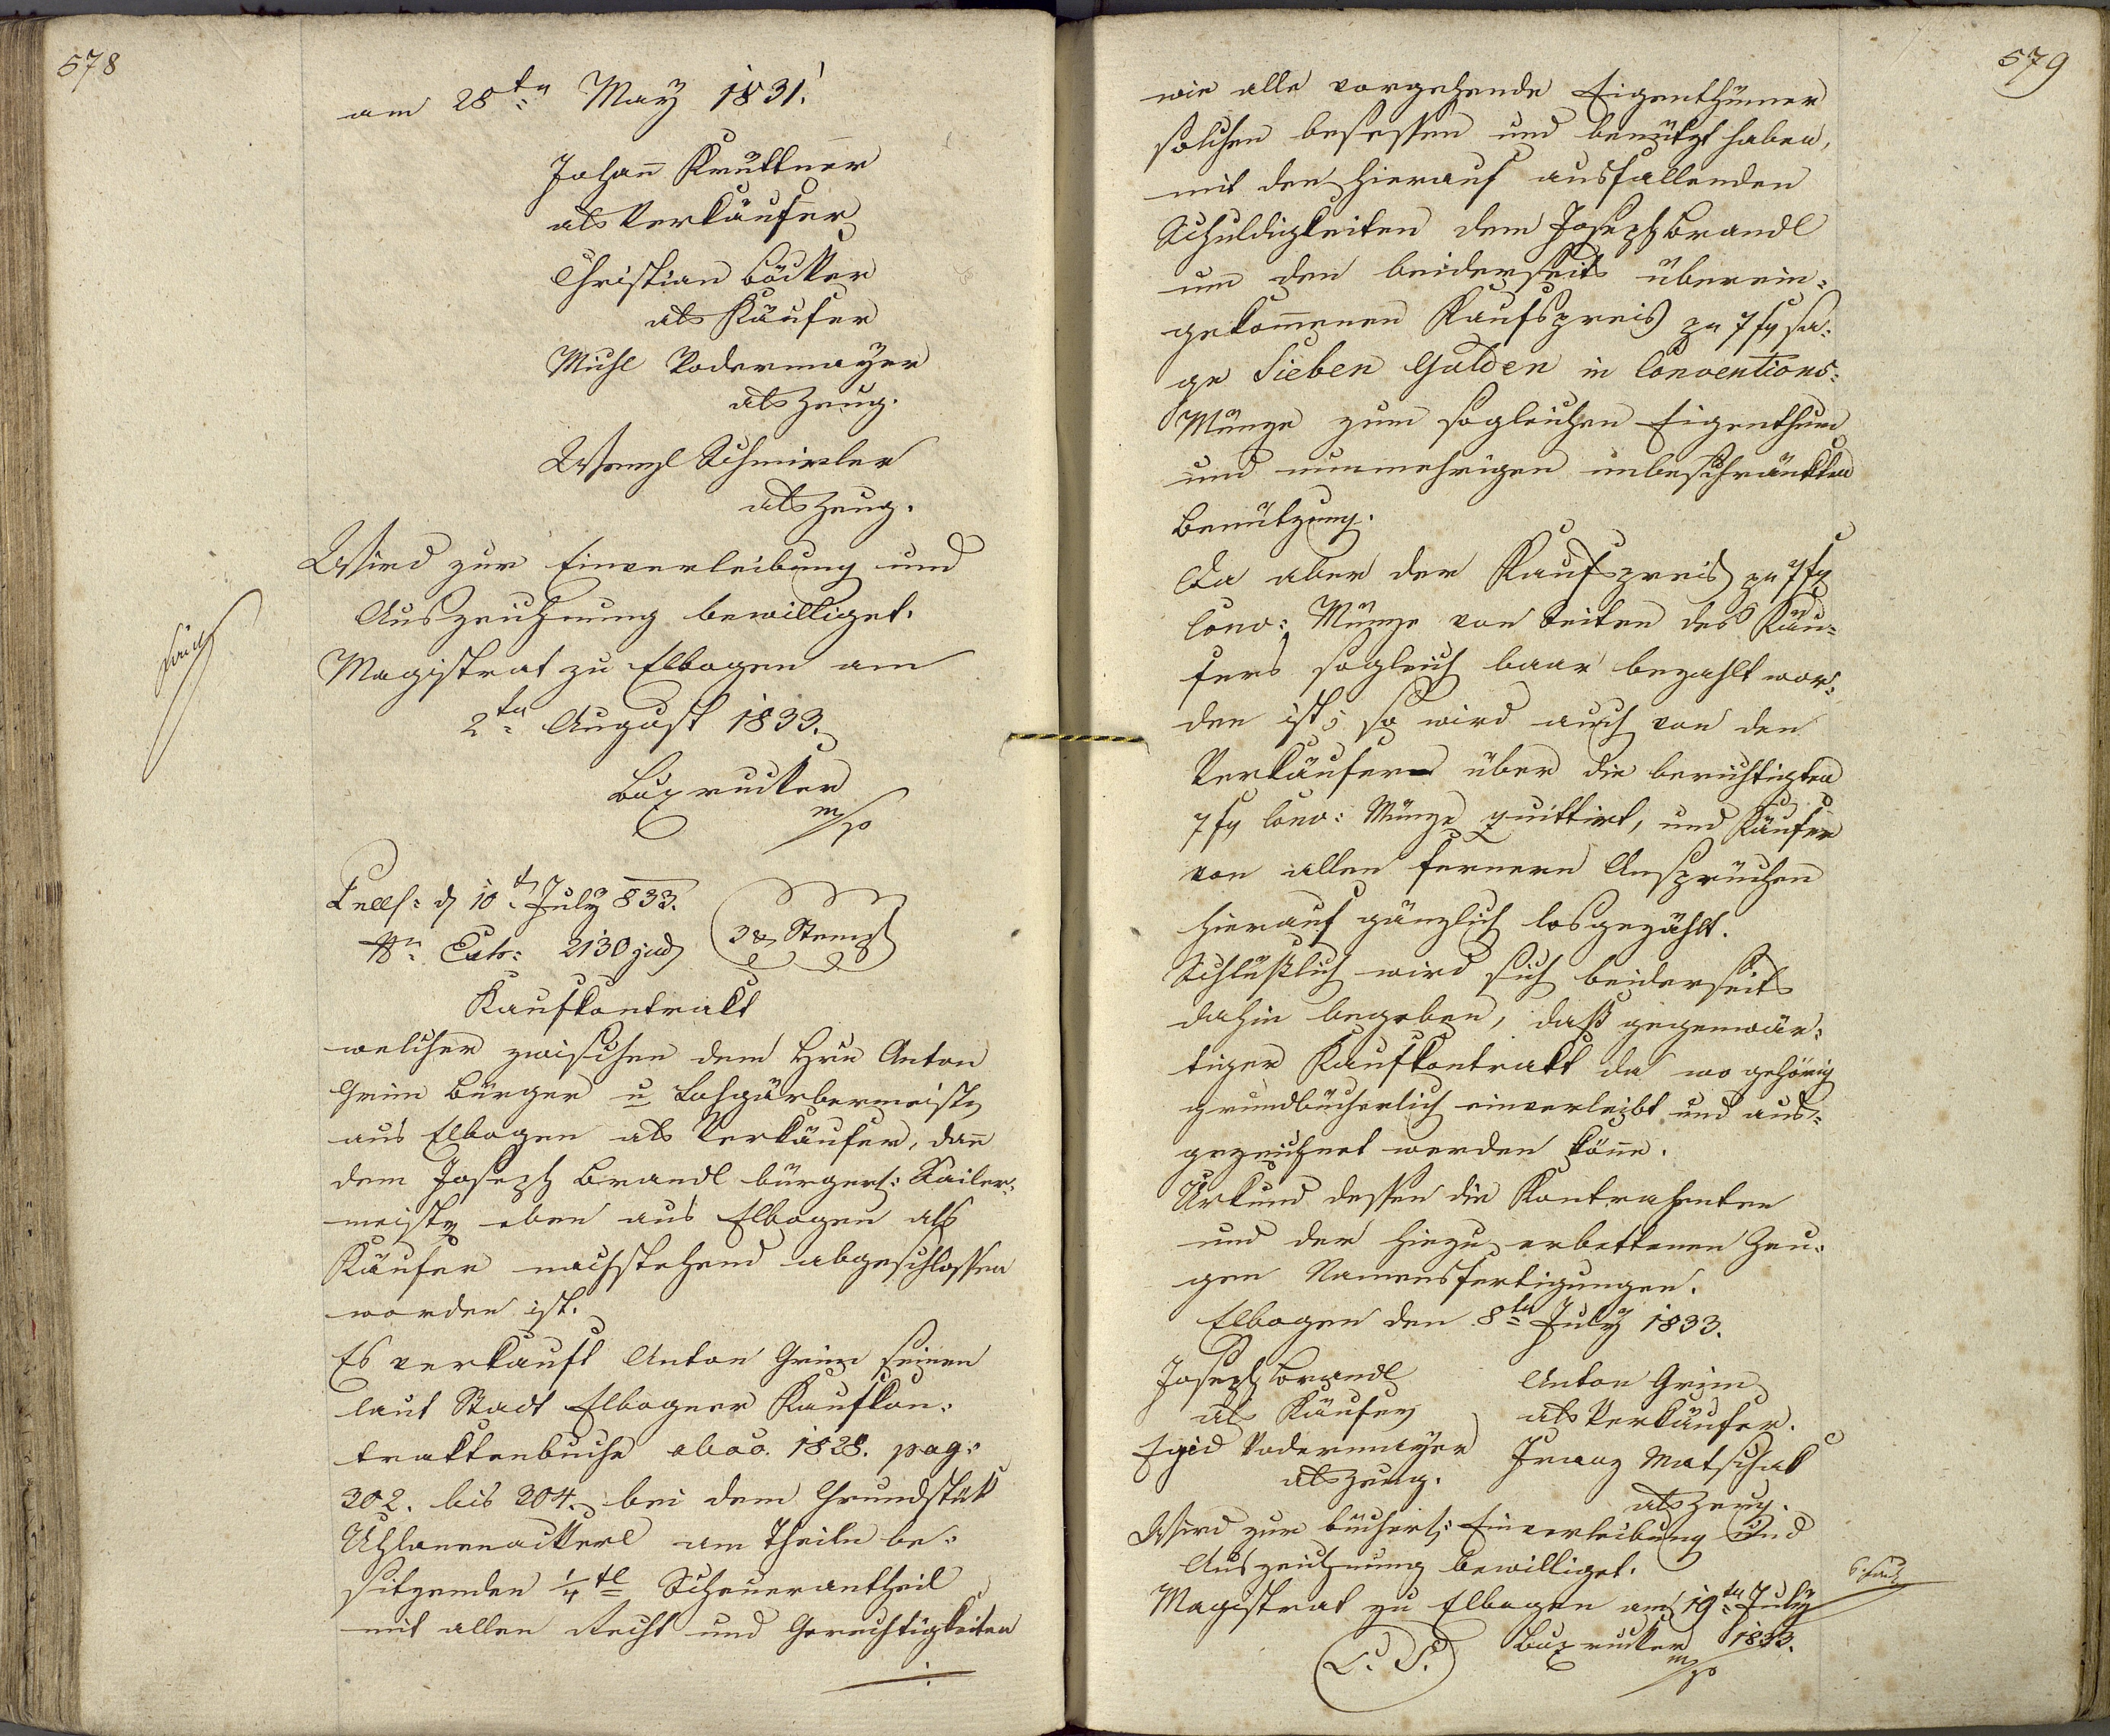 578
am 28ten May 1831.
Johañ Kruttner
als Verkäufer
Christian Böcker
als Käufer
Michl Rodermayer
als Zeug.
Wenzl Schmirler
als Zeug.
Wird zur Einverleibung und
Auszeichnung bewilliget.
Magistrat zu Elbogen am
2ten August 1833.
m/p
d 10t July 833.
Nn Exh: 2130 jud
3 x Stempl
Kaufkontrakt
welcher zwischen dem Hrn Anton
Grim Bürger u Lohgärbermeister
aus Elbogen als Verkäufer, dañ
dem Joseph Brandl bürgerl: Sailer-
meister eben aus Elbogen als
Käufer nachstehend abgeschlossen
worden ist.
Es verkauft Anton Grim seinen
laut Stadt Elbogner Kaufkon-
traktenbuche abao. 1828. pag:
302. bis 304. bei dem Grundstük
Uhlanenackerl am Theile be-
sitzenden 1/4tl Scheuerantheil
mit allen Recht und Gerechtigkeiten
./.
579
wie alle vorgehende Eigenthümer
solchen besessen und benützt haben,
mit den hierauf ausfallenden
Schuldigkeiten dem Joseph Brandl
um den beiderseits überein-
gekom̃enen Kaufspreis pr 7 fl sa-
ge Sieben Gulden in Conventions-
Münze zum sogleichen Eigenthum
und nunmehrigen unbeschränkten
Benützung.
Da aber der Kaufspreis pr 7 fl
Conv: Münze von Seiten des Käu-
fers sogleich baar bezahlt wor-
den ist; so wird auch von den
Verkäufern über die berichtigten
7 fl Conv: Münze quittirt, und Käufer
von allen fernern Ansprüchen
hierauf gänzlich losgezählt.
Schlüßlich wird sich beiderseits
dahin begeben, daß gegenwär-
tiger Kaufkontrakt da wo gehörig
grundbücherlich einverleibt und aus-
gezeichnet werden köñe.
Urkund dessen die Kontrahenten
und der hiezu erbettenen Zeu-
gen Namensfertigungen.
Elbogen den 8ten July 1833.
Joseph Brandl
als Käufer
Anton Grim
als Verkäufer.
Egid Rodermayer
als Zeug.
Franz Matschak
als Zeug.
Wird zur bücherl: Einverleibung und
Auszeichnung bewilliget.
Magistrat zu Elbogen am 19ten July
1833.
m/p
L. S.